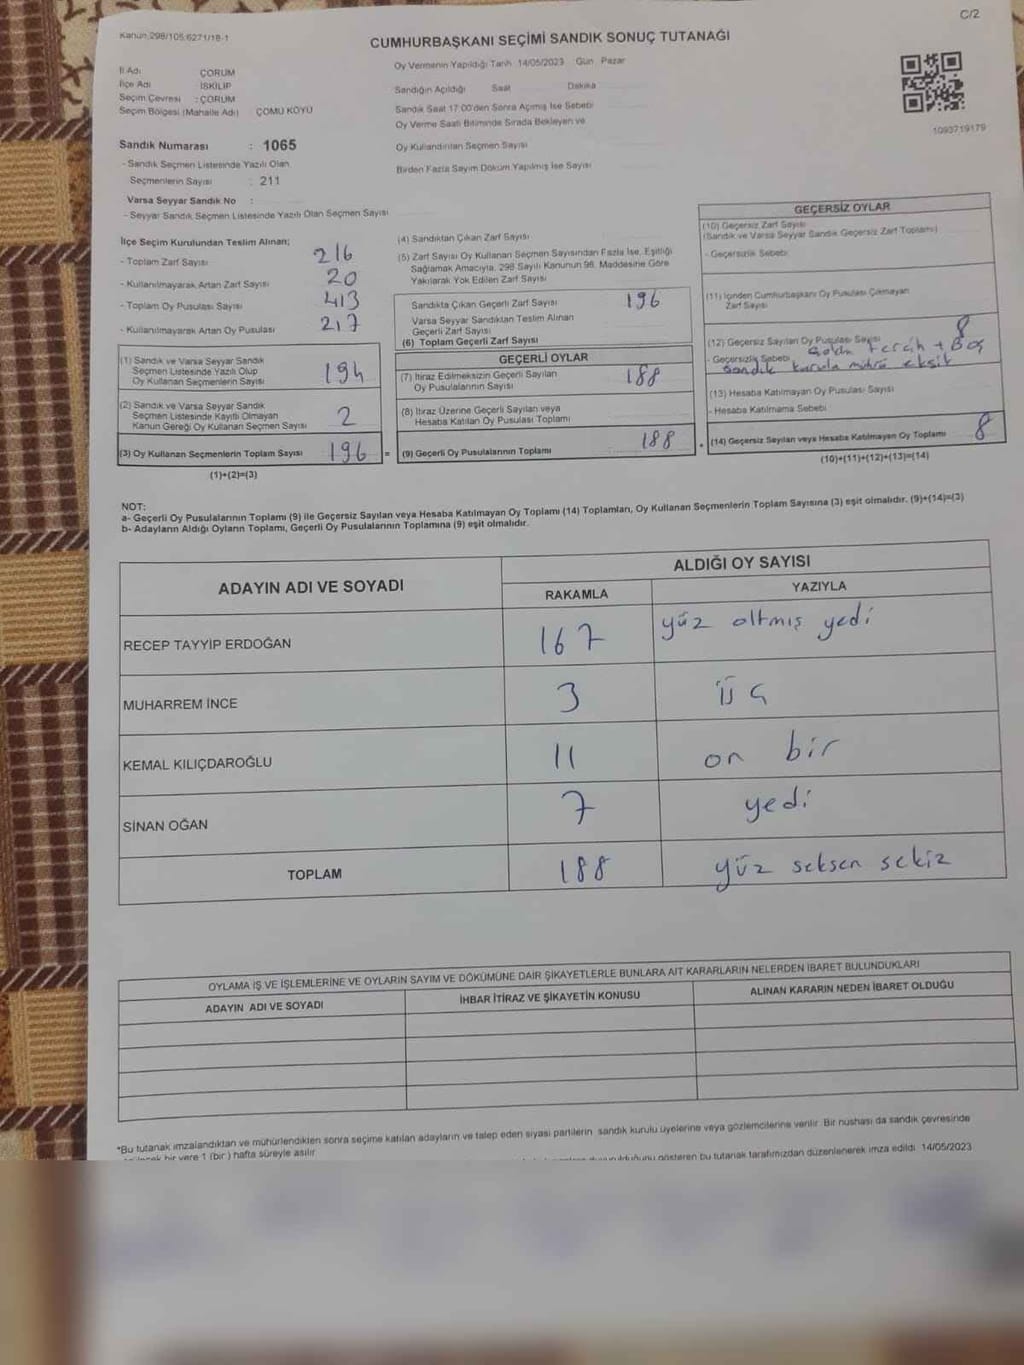 C/2
Kanun 298/105 6271/18-1
CUMHURBAŞKANI SEÇİMİ SANDIK SONUÇ TUTANAĞI
İl Adı ÇORUM
İlçe Adı İSKİLİP
Seçim Çevresi : ÇORUM
Seçim Bölgesi (Mahalle Adı) ÇOMU KÖYÜ
Oy Vermenin Yapıldığı Tarih 14/05/2023 Gün Pazar
Sandığın Açıldığı Saat Dakika
Sandık Saat 17:00'den Sonra Açımış İse Sebebi
Oy Verme Saati Bitiminde Sırada Bekleyen ve
Oy Kullandırılan Seçmen Sayısı
Birden Fazla Sayım Döküm Yapılmış İse Sayısı
1093719179
Sandık Numarası : 1065
- Sandık Seçmen Listesinde Yazılı Olan
Seçmenlerin Sayısı : 211
Varsa Seyyar Sandık No :
- Seyyar Sandık Seçmen Listesinde Yazılı Olan Seçmen Sayısı
İlçe Seçim Kurulundan Teslim Alınan;
- Toplam Zarf Sayısı 216
- Kullanılmayarak Artan Zarf Sayısı 20
- Toplam Oy Pusulası Sayısı 413
- Kullanılmayarak Artan Oy Pusulası 217
(1) Sandık ve Varsa Seyyar Sandık
Seçmen Listesinde Yazılı Olup
Oy Kullanan Seçmenlerin Sayısı 194
(2) Sandık ve Varsa Seyyar Sandık
Seçmen Listesinde Kayıtlı Olmayan
Kanun Gereği Oy Kullanan Seçmen Sayısı 2
(3) Oy Kullanan Seçmenlerin Toplam Sayısı 196 =
(1)+(2)=(3)
(4) Sandıktan Çıkan Zarf Sayısı
(5) Zarf Sayısı Oy Kullanan Seçmen Sayısından Fazla İse, Eşitliği
Sağlamak Amacıyla, 298 Sayılı Kanunun 98. Maddesine Göre
Yakılarak Yok Edilen Zarf Sayısı
Sandıkta Çıkan Geçerli Zarf Sayısı 196
Varsa Seyyar Sandıktan Teslim Alınan
Geçerli Zarf Sayısı
(6) Toplam Geçerli Zarf Sayısı
GEÇERLİ OYLAR
(7) İtiraz Edilmeksizin Geçerli Sayılan
Oy Pusulalarının Sayısı 188
(8) İtiraz Üzerine Geçerli Sayılan veya
Hesaba Katılan Oy Pusulası Toplamı
(9) Geçerli Oy Pusulalarının Toplamı 188 +
GEÇERSİZ OYLAR
(10) Geçersiz Zarf Sayısı
(Sandık ve Varsa Seyyar Sandık Geçersiz Zarf Toplamı)
- Geçersizlik Sebebi
(11) İçinden Cumhurbaşkanı Oy Pusulası Çıkmayan
Zarf Sayısı
(12) Geçersiz Sayılan Oy Pusulası Sayısı 8
- Geçersizlik Sebebi tercih + Boş
sandık kurulu mührü eksik
(13) Hesaba Katılmayan Oy Pusulası Sayısı
- Hesaba Katılmama Sebebi
(14) Geçersiz Sayılan veya Hesaba Katılmayan Oy Toplamı 8
(10)+(11)+(12)+(13)=(14)
NOT:
a- Geçerli Oy Pusulalarının Toplamı (9) ile Geçersiz Sayılan veya Hesaba Katılmayan Oy Toplamı (14) Toplamları, Oy Kullanan Seçmenlerin Toplam Sayısına (3) eşit olmalıdır. (9)+(14)=(3)
b- Adayların Aldığı Oyların Toplamı, Geçerli Oy Pusulalarının Toplamına (9) eşit olmalıdır.
ADAYIN ADI VE SOYADI
ALDIĞI OY SAYISI
RAKAMLA YAZIYLA
RECEP TAYYİP ERDOĞAN 167 yüz altmış yedi
MUHARREM İNCE 3 üç
KEMAL KILIÇDAROĞLU 11 on bir
SİNAN OĞAN 7 yedi
TOPLAM 188 yüz seksen sekiz
OYLAMA İŞ VE İŞLEMLERİNE VE OYLARIN SAYIM VE DÖKÜMÜNE DAİR ŞİKAYETLERLE BUNLARA AİT KARARLARIN NELERDEN İBARET BULUNDUKLARI
ADAYIN ADI VE SOYADI İHBAR İTİRAZ VE ŞİKAYETİN KONUSU ALINAN KARARIN NEDEN İBARET OLDUĞU
*Bu tutanak imzalandıktan ve mühürlendikten sonra seçime katılan adayların ve talep eden siyasi partilerin sandık kurulu üyelerine veya gözlemcilerine verilir. Bir nüshası da sandık çevresinde
bir yere 1 (bir) hafta süreyle asılır. gösteren bu tutanak tarafımızdan düzenlenerek imza edildi. 14/05/2023